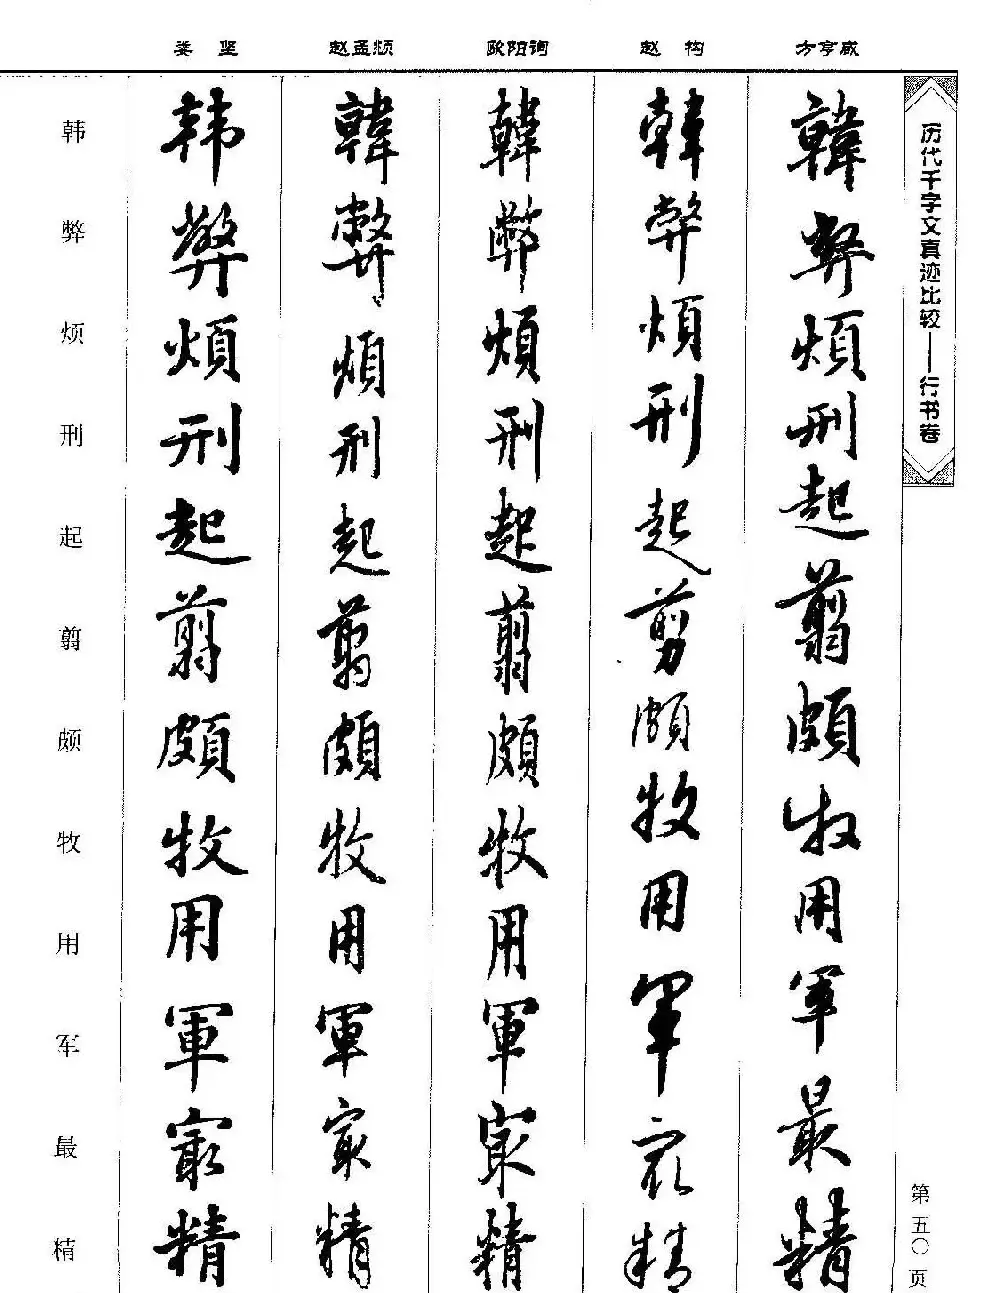 娄坚 赵孟頫 欧阳询 赵构 方亨咸
历代千字文真迹比较——行书卷
韩 韩 韓 韓 韓 韓
弊 弊 弊 弊 弊 弊
烦 煩 煩 煩 煩 煩
刑 刑 刑 刑 刑 刑
起 起 起 起 起 起
翦 翦 翦 翦 剪 翦
颇 頗 頗 頗 頗 頗
牧 牧 牧 牧 牧 牧
用 用 用 用 用 用
军 軍 軍 軍 軍 軍
最 冣 冣 冣 冣 最
精 精 精 精 精 精
第五〇页